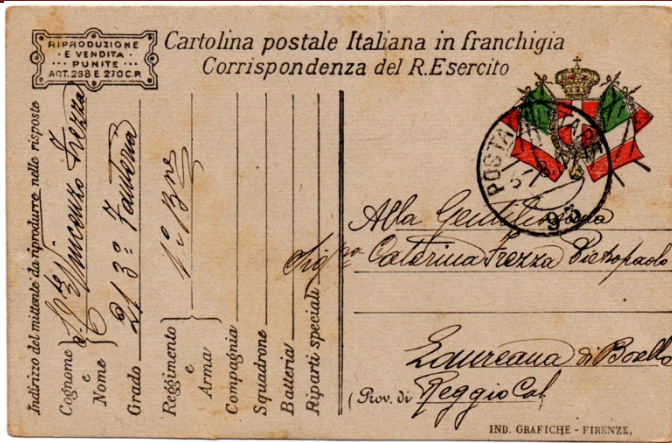 RIPRODUZIONE
E VENDITA
PUNITE
ART. 268 E 270 C.P.
Cartolina postale Italiana in franchigia
Corrispondenza del R. Esercito
POSTA
93
Indirizzo del mittente da riprodurre nelle risposte
Cognome e Nome Vincenzo Frezza
Grado 213º Fanteria
Reggimento e Arma
Compagnia
Squadrone
Batteria
Riparti speciali
Alla Gentilissima
Caterina Frezza
Laureana di Borello
(Prov. di Reggio Cal.
IND. GRAFICHE - FIRENZE.